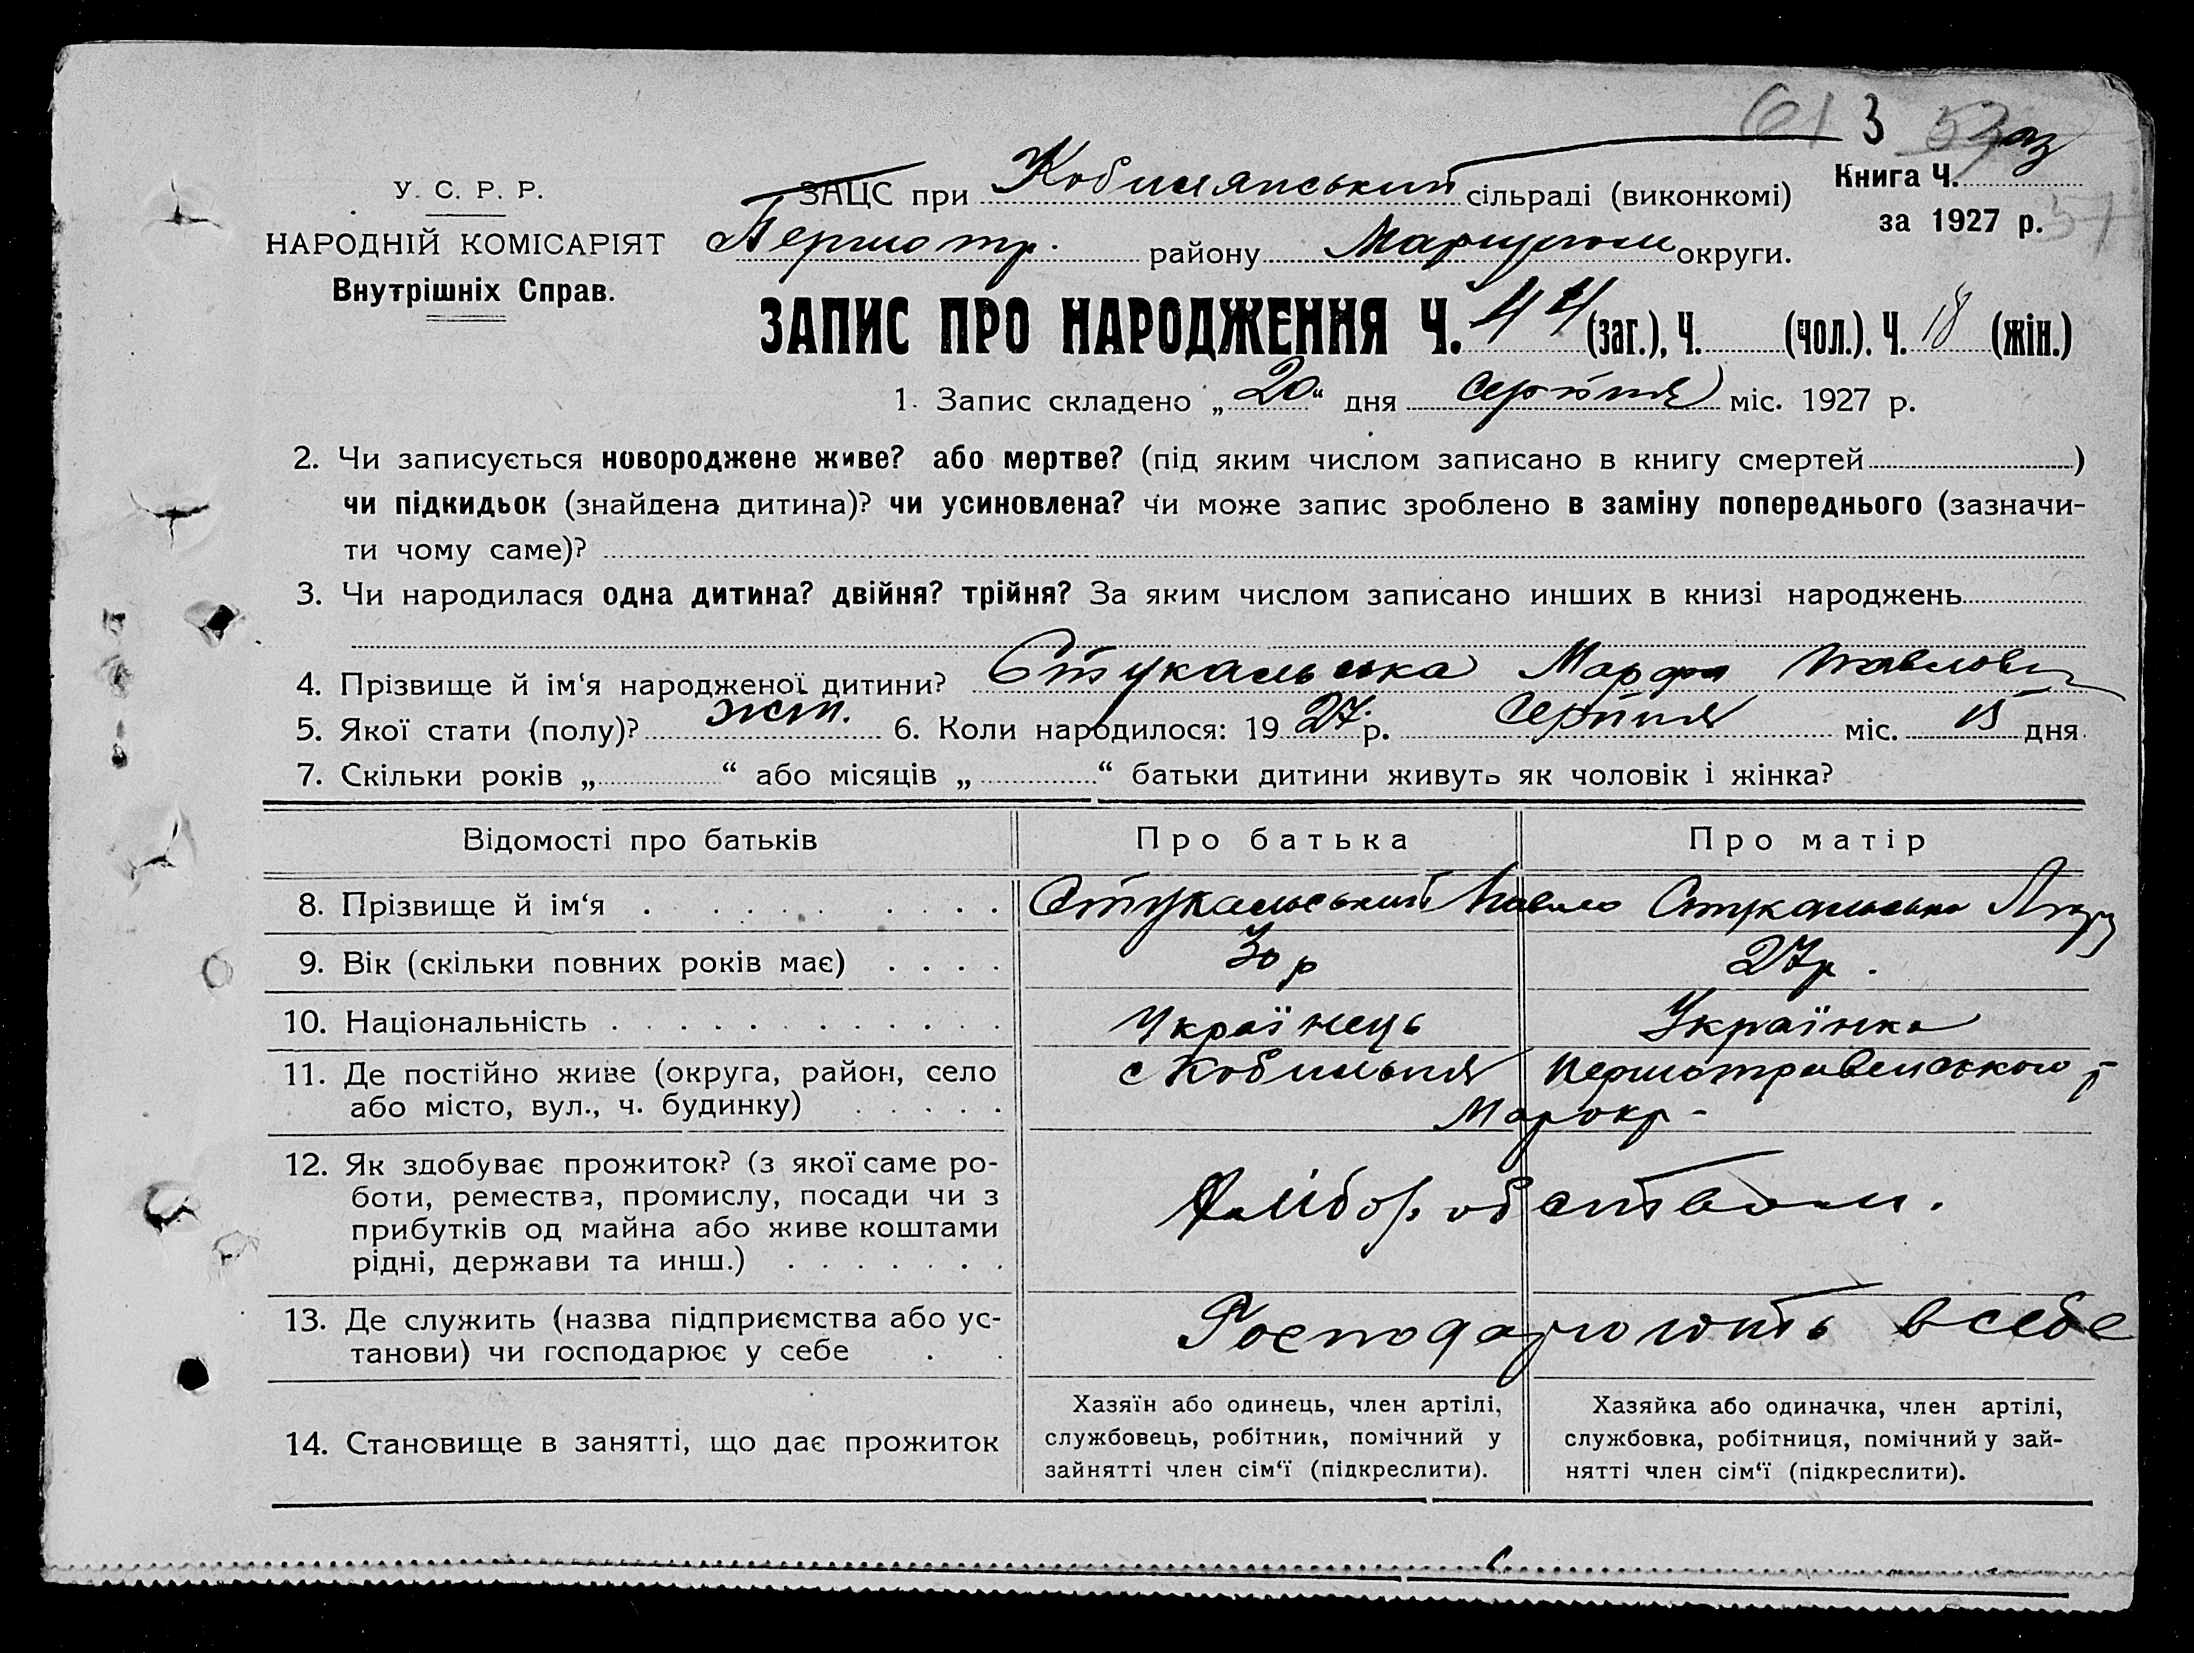 61 3
У. С. Р. Р.
НАРОДНІЙ КОМІСАРІЯТ
Внутрішніх Справ.
ЗАЦС при Кобилянський сільраді (виконкомі)
Першотр. району Маріупольс округи.
Книга Ч.
за 1927 р.
ЗАПИС ПРО НАРОДЖЕННЯ Ч. 44 (заг.), Ч. (чол.). Ч. 18 (жін.)
1. Запис складено „20“ дня серпня міс. 1927 р.
2. Чи записується новороджене живе? або мертве? (під яким числом записано в книгу смертей )
чи підкидьок (знайдена дитина)? чи усиновлена? чи може запис зроблено в заміну попереднього (зазначи-
ти чому саме)?
3. Чи народилася одна дитина? двійня? трійня? За яким числом записано инших в книзі народжень
4. Прізвище й ім‘я народженої дитини? Стукальська Марфа Павлов
5. Якої стати (полу)? жін. 6. Коли народилося: 1927 р. Серпня міс. 15 дня
7. Скільки років „ “ або місяців „ “ батьки дитини живуть як чоловік і жінка?
Відомості про батьків Про батька Про матір
8. Прізвище й ім‘я Стукальський Павло Стукальська
9. Вік (скільки повних років має) 30 р 27 р.
10. Національність Українець Українка
11. Де постійно живе (округа, район, село
або місто, вул., ч. будинку)
с Кобильня Першотравенського р
Марокр-
12. Як здобуває прожиток? (з якої саме ро-
боти, ремества, промислу, посади чи з
прибутків од майна або живе коштами
рідні, держави та инш.)
Хліборобством.
13. Де служить (назва підприємства або ус-
танови) чи господарює у себе
Господарюють в себе
14. Становище в занятті, що дає прожиток
Хазяїн або одинець, член артілі,
службовець, робітник, помічний у
зайнятті член сім‘ї (підкреслити).
Хазяйка або одиначка, член артілі,
службовка, робітниця, помічний у зай-
нятті член сім‘ї (підкреслити).